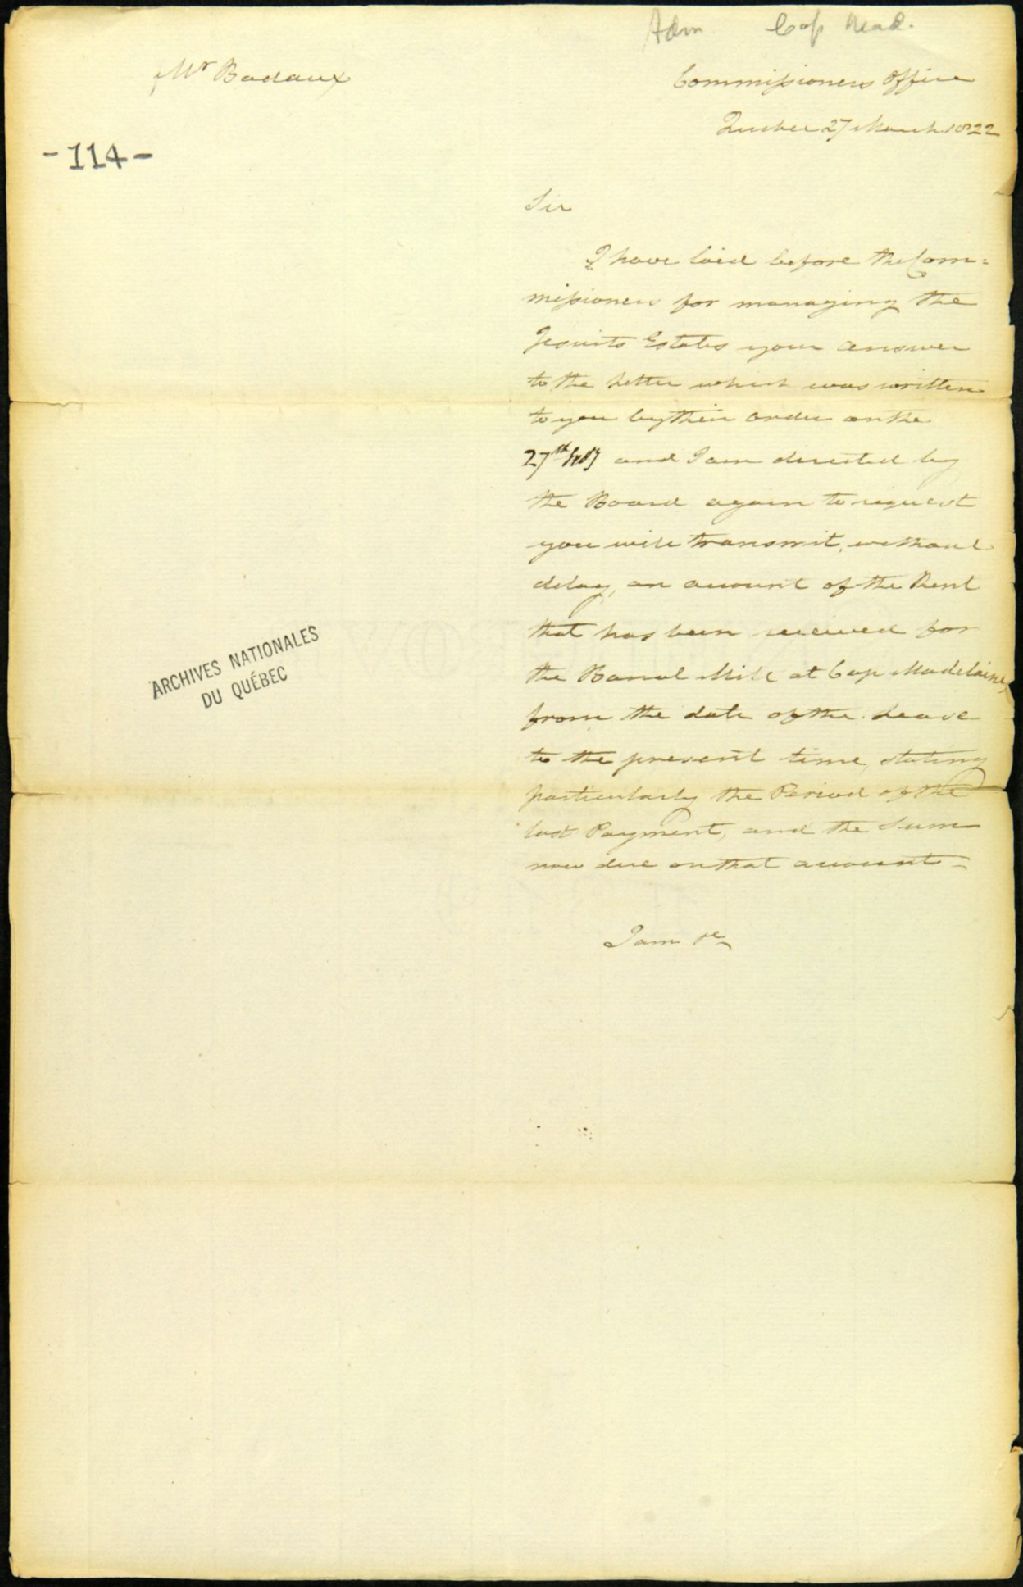 Adm. Cap Mad.
Mr Badaux
Commissioners Office
Quebec 27 March 1822
-114-
Sir
I have laid before the Com=
missioners for managing the
Jesuits Estates your answer
to the Letter which was written
to you by their order on the
27th and I am directed by
the Board again to request
you will transmit, without
delay, an account of the Rent
that has been received for
the Banal Mill at Cap Madelaine,
from the date of the Lease
to the present time, stating
particularly the Period of the
last Payment, and the Sum
now due on that account=
I am &c
ARCHIVES NATIONALES
DU QUÉBEC